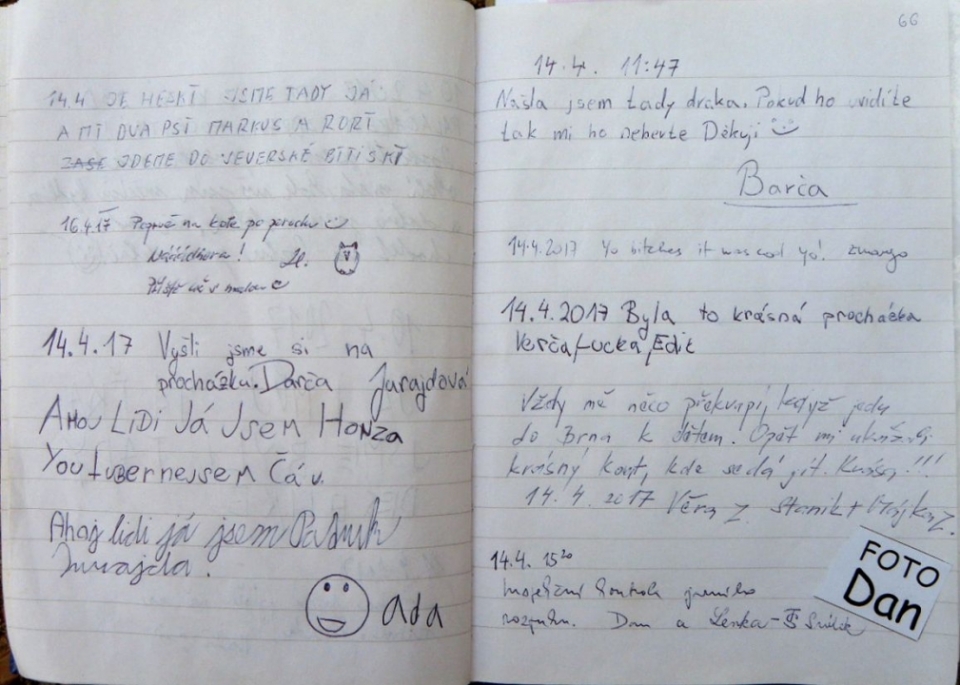 14.4 JE HEZKÝ JSME TADY JÁ
A MÍ DVA PSI MARKUS A RORÝ
ZASE JDEME DO VEVERSKÉ BÍTIŠKÝ
16.4.17 Poprvé na kole po porodu
14.4.17 Vyšli jsme si na
procházku. Darča Jurajdová
AHOJ LiDi JÁ JSem HonzA
Youtubernejsem ČÁu.
Ahoj lidi já jsem
Jurajda.
Ada
66
14.4. 11:47
Našla jsem tady draka. Pokud ho uvidíte
tak mi ho neberte Děkuji
Barča
14.4.2017 Yo bitches it was cool yo!
14.4.2017 Byla to krásná procházka
Verča, Lucka, Edit
Vždy mě něco překvapí, když jedu
do Brna k dětem. Opět mi ukázali
krásný kout, kde se dá jít. Krása!!!
14.4.2017 Věra Z. Stanik +
14.4. 15²⁰
kontrola
Dan a Lenka
FOTO
Dan